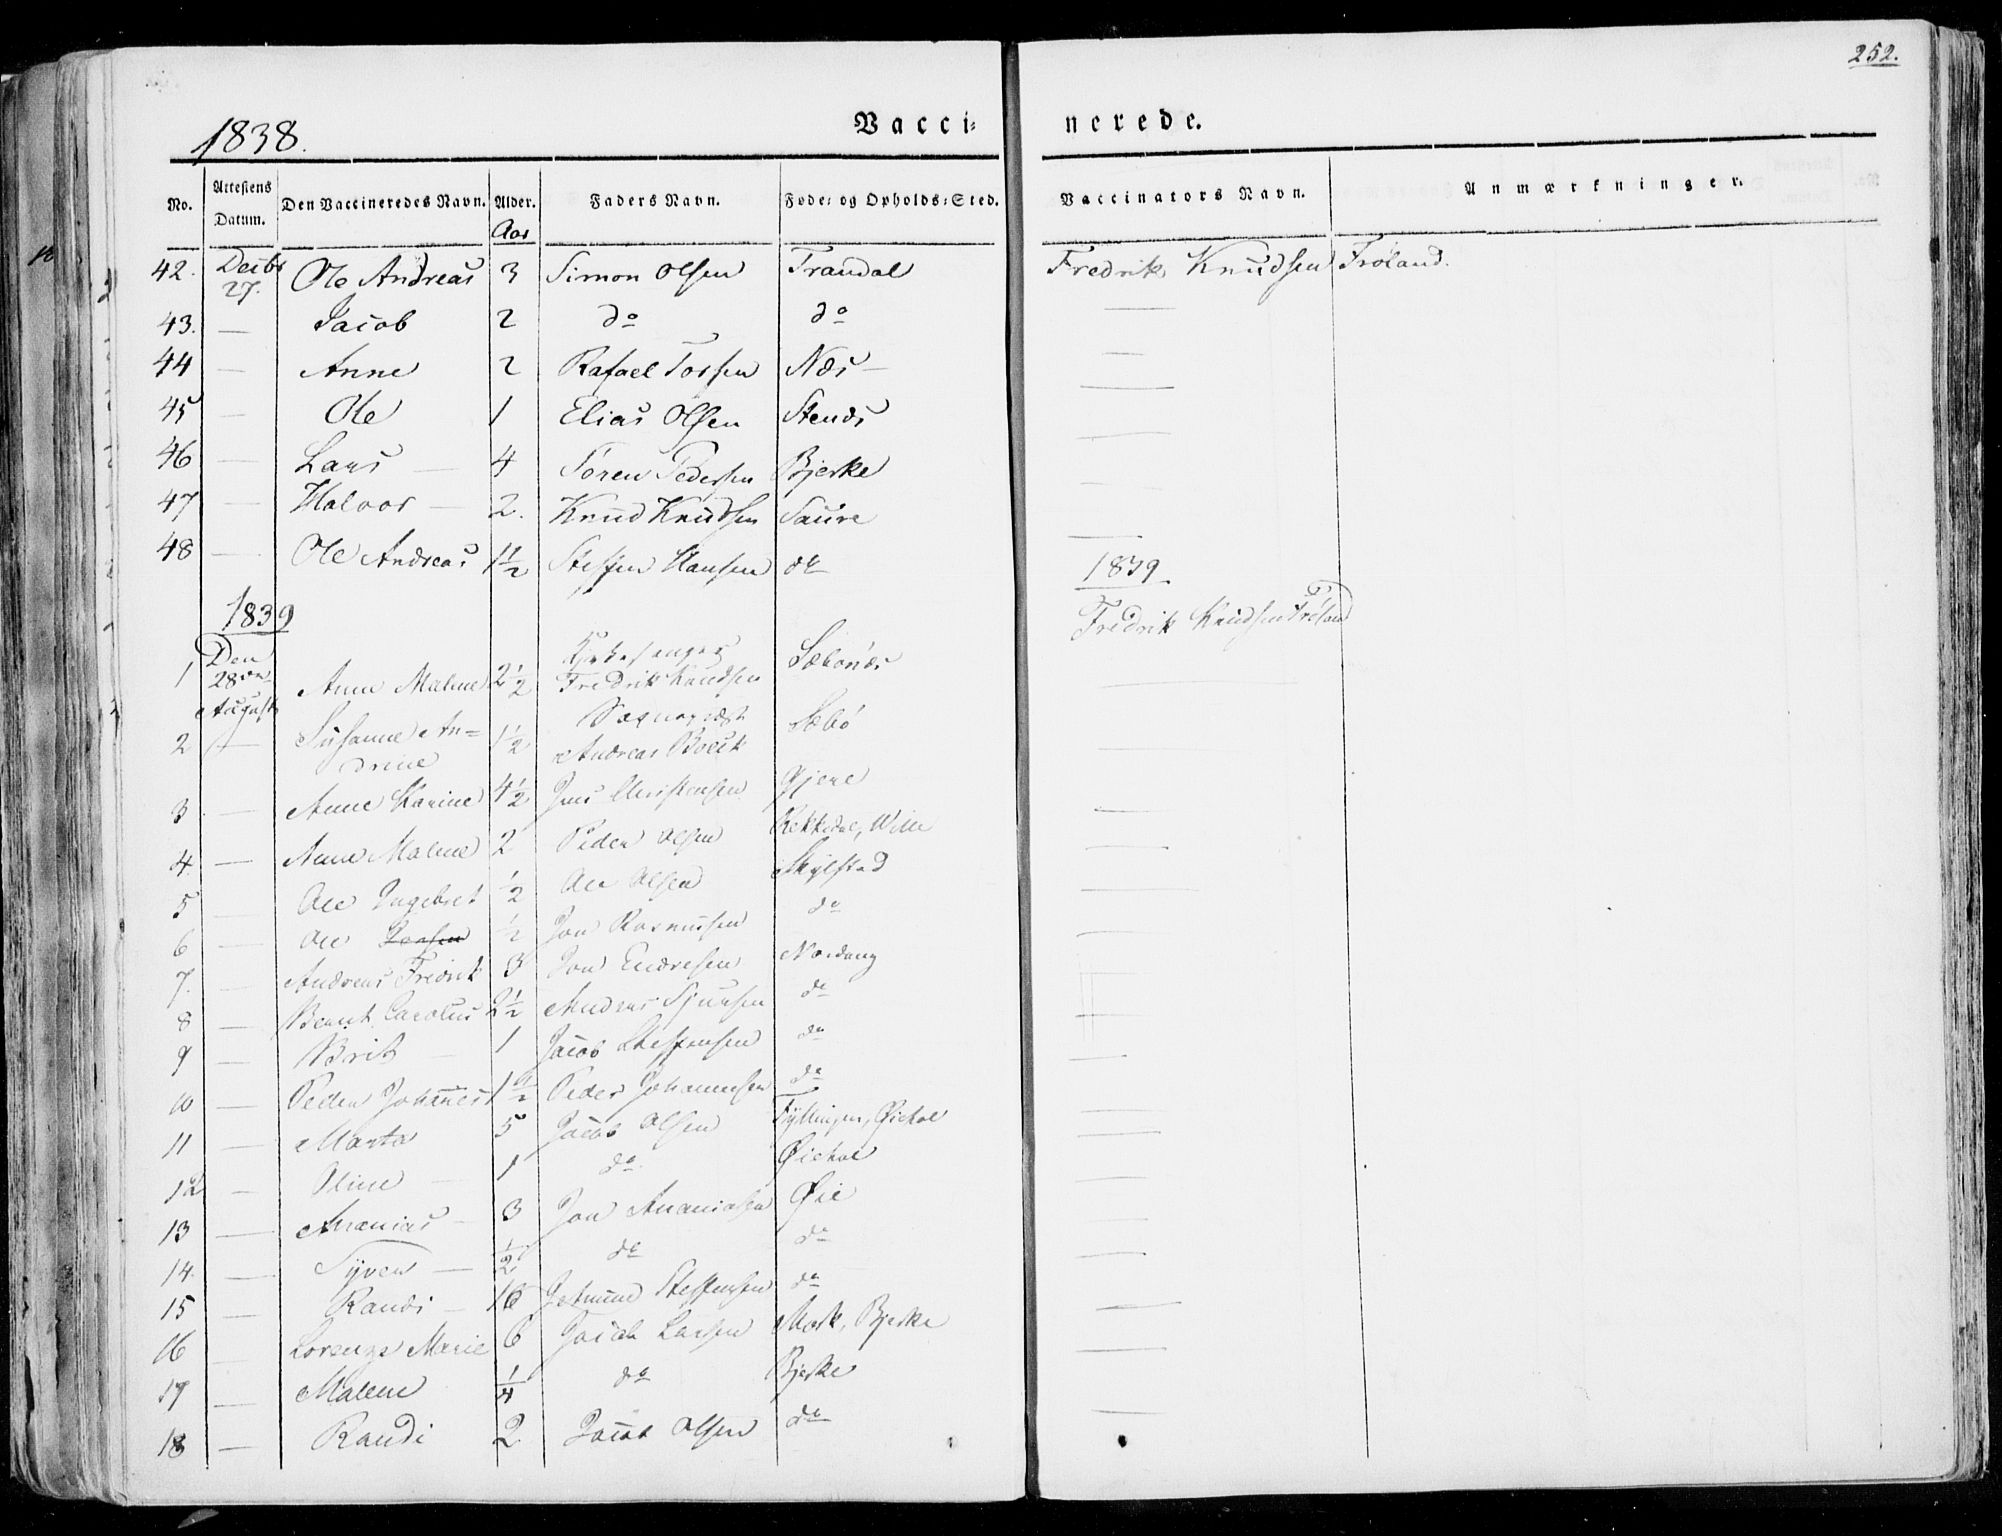 252.
1838.
Vacci= nerede.
No. Attestens Datum. Den Vaccineredes Navn. Alder. Faders Navn. Føde= og Opholds=Sted. Vaccinators Navn. Anmærkninger.
Aar
42. Decbr 27. Ole Andreas 3 Simon Olsen Trandal Fredrik Knudsen Frøland.
43. — Jacob 2 do do —
44 — Anne 2 Rafael Næs — —
45 — Ole 1 Elias Olsen Stenæs —
46 — Lars — 4 Søren Pedersen Bjerke —
47 — Halvor — 2. Knud Knudsen Saure —
48 — Ole Andreas 1½ Steffen Hansen do —
1839 1839
1 Den 28de August Anne Malene 2½ Kirkesanger Fredrik Knudsen Sæbønæs Fredrik Knudsen Frøland
2 — Susanne Andrine 1½ Sognepræst Andreas Boeck Sæbø —
3 — Anne Karine 4½ Jens Christensen Gjere —
4 — Anne Malene 2 Peder Olsen Rekkedal, —
5 — Ole Ingebret ½ Ole Olsen Skylstad —
6 — Ole ½ Jon Rasmussen do —
7. — Andreas Fredrik 3 Jon Endresen Nordang —
8 — Bernt Carolus 2½ do —
9 — Brit — 1 Jacob Steffensen do —
10 — Peder Johannes 1½ Peder Johannesen do —
11 — Marta 5 Jacob Olsen —
12 — Oline — 1 do —
13 — Ananias — 3 Jon Ananiasen Øie —
14. — Syver — ½ do do —
15 — Randi — 16 Steffensen do —
16 — Lorenze Marie 6 Jacob Larsen Mork, Bjerke —
17 — Malene ¼ do Bjerke —
18 — Randi 2 Jacob Olsen do —